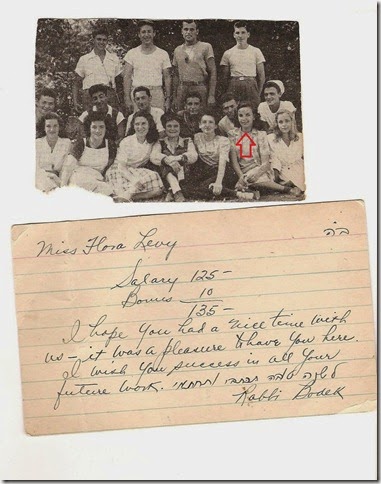 ב״ה
Miss Flora Levy
Salary 125-
Bonus 10
135-
I hope you had a nice time with
us - it was a pleasure to have you here.
I wish you success in all your
future work. לשנה טובה תכתבי ותחתמי
Rabbi Bodek